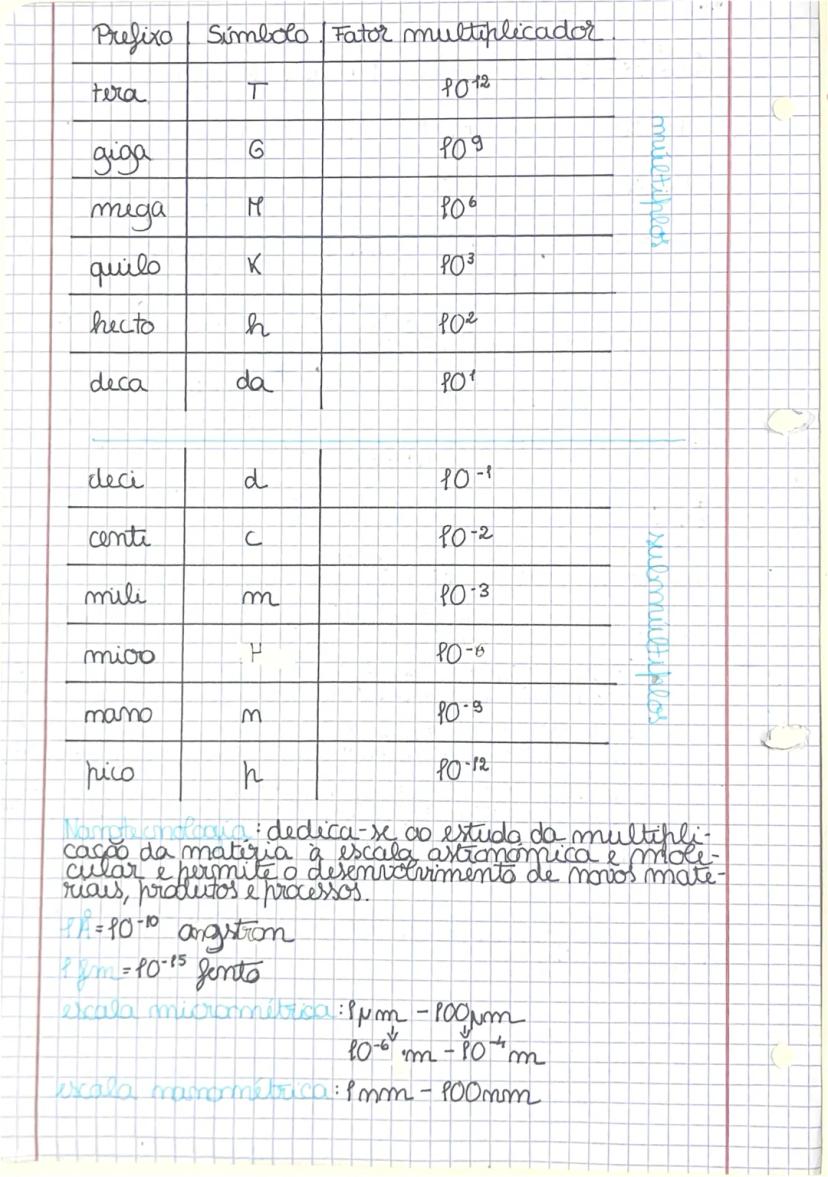 Prefixo Símbolo Fator multiplicador.
tera T 10¹²
giga G 10⁹
mega M 10⁶
múltiplos
quilo K 10³
hecto h 10²
deca da 10¹
deci d 10⁻¹
centi c 10⁻²
mili m 10⁻³
submúltiplos
micro μ 10⁻⁶
nano n 10⁻⁹
pico p 10⁻¹²
Nanotecnologia: dedica-se ao estudo da multipli-
cação da matéria à escala astronómica e mole-
cular e permite o desenvolvimento de novos mate-
riais, produtos e processos.
1Å = 10⁻¹⁰ angstron
1 fm = 10⁻¹⁵ fento
escala micrométrica: 1μm - 100μm
↓ ↓
10⁻⁶ m - 10⁻⁴ m
escala nanométrica: 1nm - 100nm